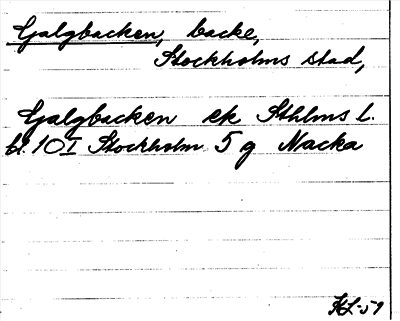 Galgbacken, backe,
Stockholms stad,
Galgbacken ek Sthlms l.
bl. 10I Stockholm 5 g Nacka
KL-51